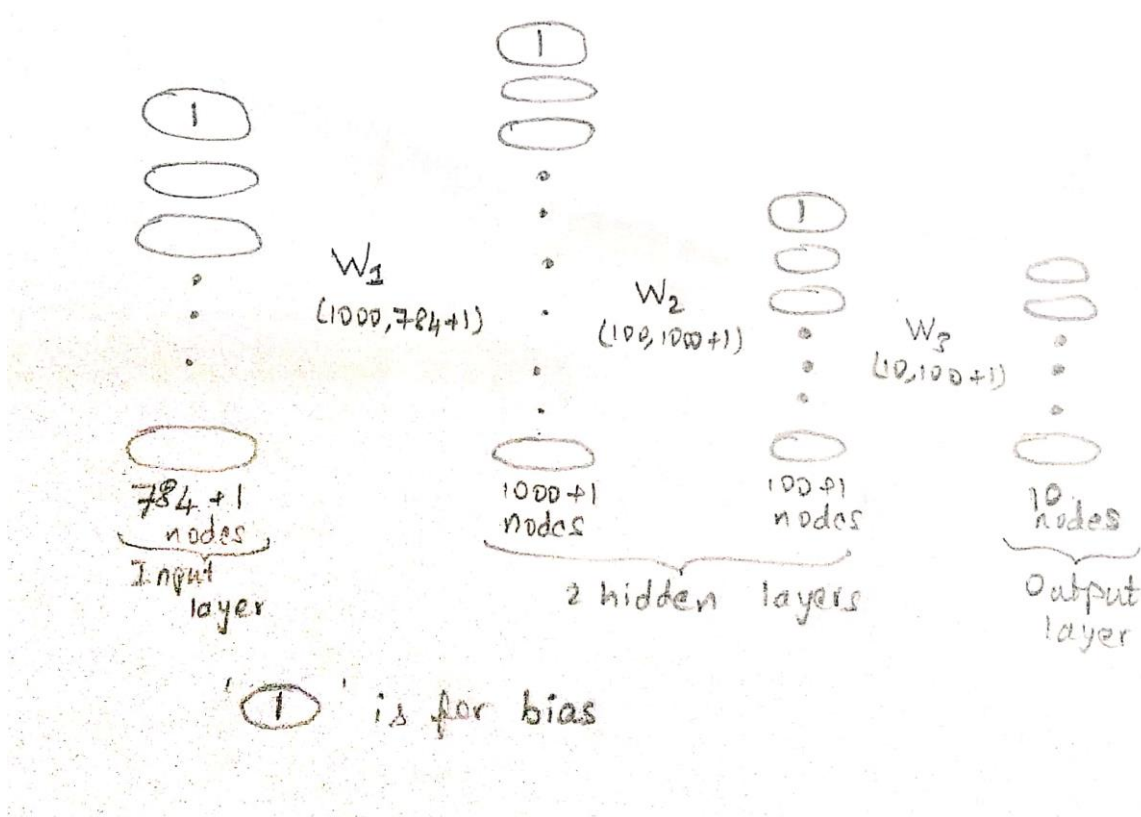 1
1
1
W1
(1000,784+1)
W2
(100,1000+1)
W3
(10,100+1)
784+1
nodes
Input
layer
1000+1
nodes
100+1
nodes
2 hidden layers
10
nodes
Output
layer
'1' is for bias